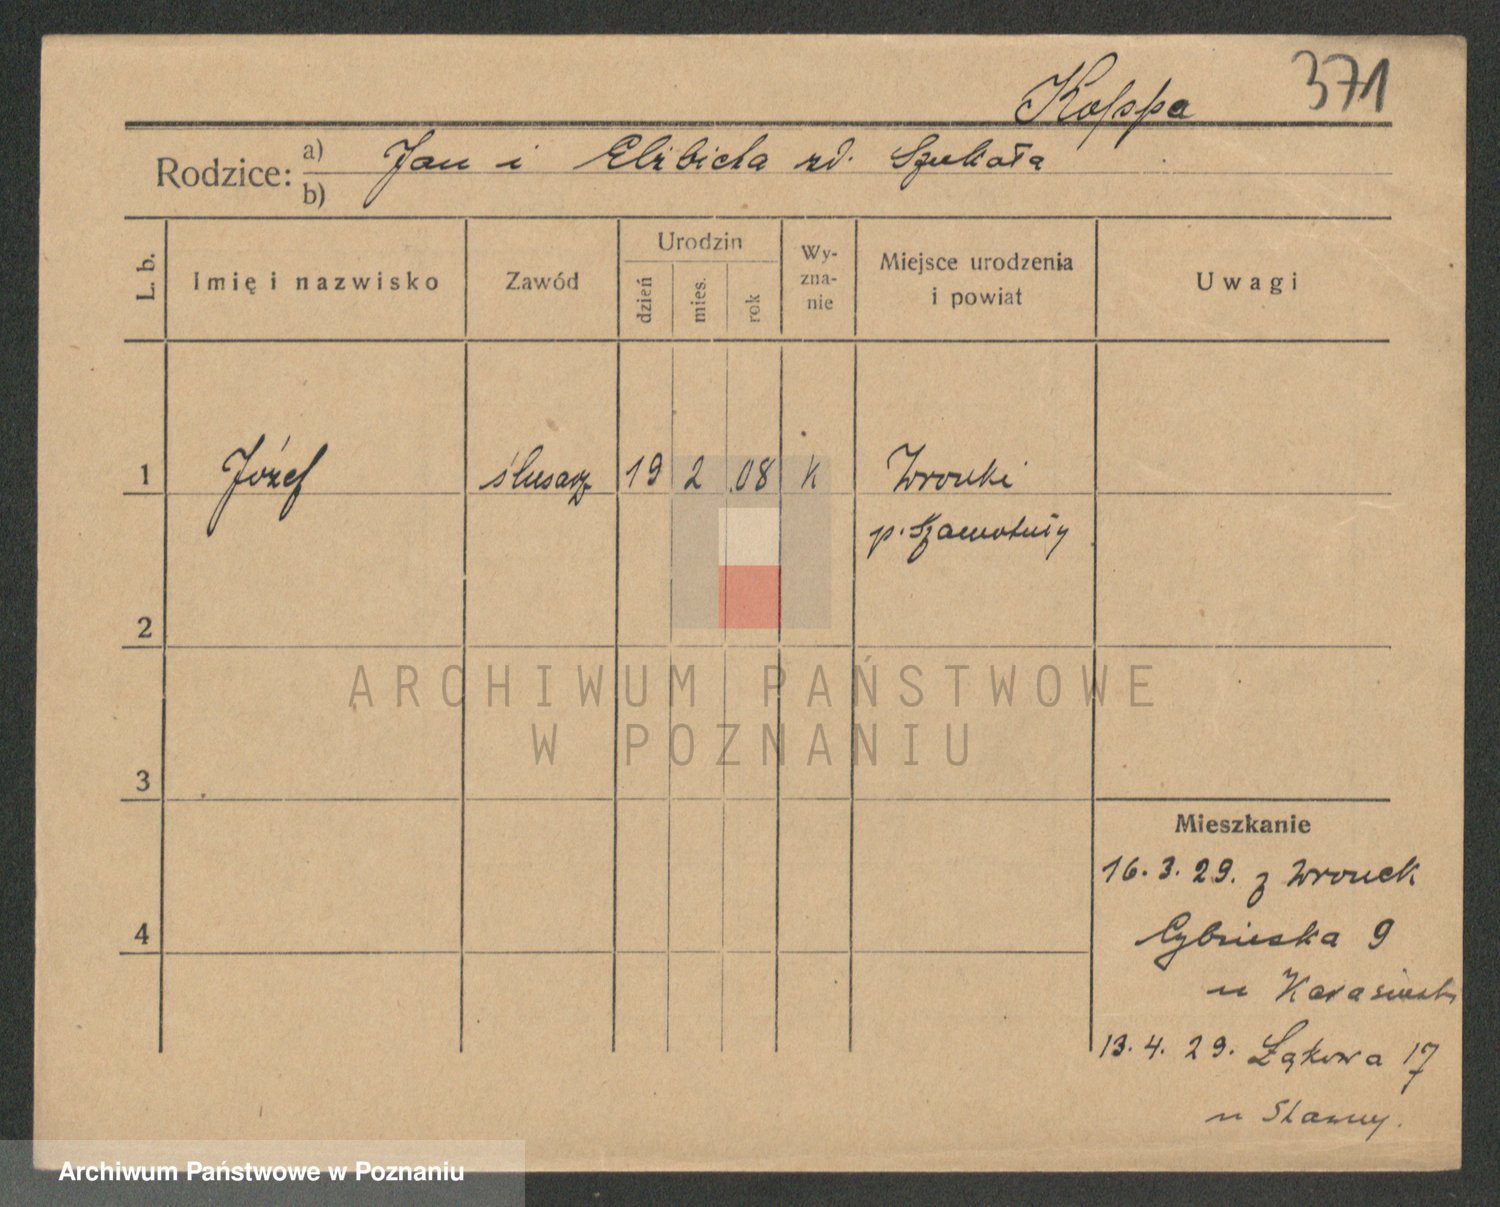 Koppa 371
Rodzice: a) Jan i Elżbieta zd. Szukała
b)
L. b. Imię i nazwisko Zawód Urodzin dzień mies. rok Wyznanie Miejsce urodzenia i powiat Uwagi
1 Józef ślusarz 19 2 08 k Wronki
p. Szamotuły
2
3
4
Mieszkanie
16. 3. 29. z Wronek
Cybińska 9
u
13. 4. 29. Łąkowa 17
u
ARCHIWUM PAŃSTWOWE
W POZNANIU
Archiwum Państwowe w Poznaniu